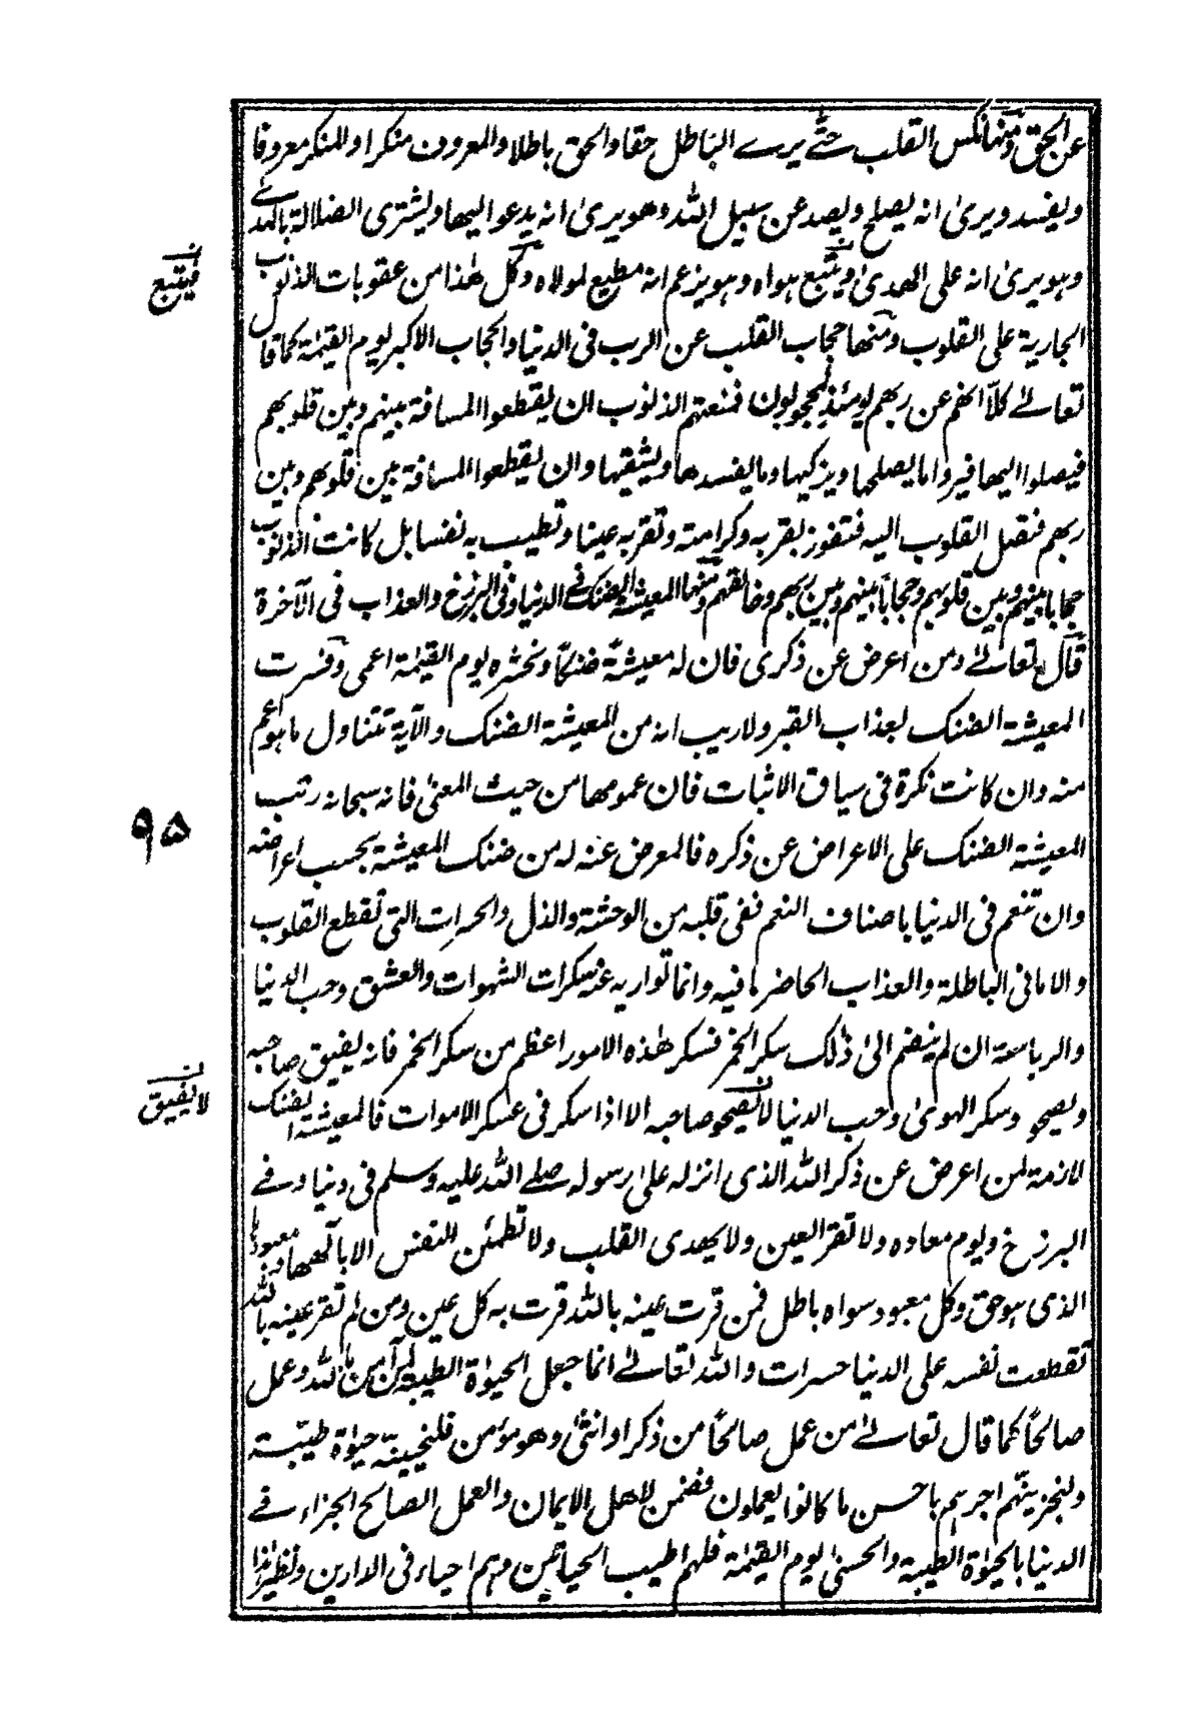 عن الحق ومنها نكس القلب حتى يرے الباطل حقا والحق باطلا والمعروف منكرا والمنكر معروفا
ويفسد ويرى انه يصلح ويصد عن سبيل الله وهو يرى انه يدعو اليها ويشترى الضلالة بالهدے
وهو يرى انه على الهدى ويتبع هواه وهو يزعم انه مطيع لمولاه وكل هذا من عقوبات الذنوب
فيتبع
الجارية على القلوب ومنها حجاب القلب عن الرب فى الدنيا والحجاب الاكبر يوم القيٰمة كما قال
تعالے كلّا انهم عن ربهم يومئذ لمحجوبون فمنعتهم الذنوب ان يقطعوا المسافة بينهم وبين قلوبهم
فيصلوا اليها فيروا ما يصلحها ويزكيها وما يفسدها ويشقيها وان يقطعوا المسافة بين قلوبهم وبين
ربهم فتصل القلوب اليه فتفوز بقربه وكرامته وتقر به عينا وتطيب به نفسا بل كانت الذنوب
حجابا بينهم وبين قلوبهم وحجابا بينهم وبين ربهم وخالقهم ومنها المعيشة الضنك فے الدنيا وفى البرزخ والعذاب فى الآخرة
قال تعالے ومن اعرض عن ذكرى فان له معيشةً ضنكاً ونحشره يوم القيٰمة اعمى وفسرت
المعيشة الضنك بعذاب القبر ولا ريب انه من المعيشة الضنك والآية تتناول ما هو اعم
منه وان كانت نكرة فى سياق الاثبات فان عمومها من حيث المعنى فانه سبحانه رتب
٩٥
المعيشة الضنك على الاعراض عن ذكره فالمعرض عنه له من ضنك المعيشة بحسب اعراضه
وان تنعم فى الدنيا باصناف النعم ففى قلبه من الوحشة والذل والحسرات التى تقطع القلوب
والامانى الباطلة والعذاب الحاضر ما فيه وانما تواريه عنه سكرات الشهوات والعشق وحب الدنيا
والرياسة ان لم ينضم الى ذلك سكر الخمر فسكر هذه الامور اعظم من سكر الخمر فانه يفيق صاحبه
ويصحو وسكر الهوى وحب الدنيا لا يصحو صاحبه الا اذا سكر فى عسكر الاموات فالمعيشة الضنك
لا يفيق
لازمة لمن اعرض عن ذكر الله الذى انزله على رسوله صلے الله عليه وسلم فى دنيا وفے
البرزخ ويوم معاده ولا تقر العين ولا يهدى القلب ولا تطمئن النفس الا بالهها ومعبودها
الذى هو حق وكل معبود سواه باطل فمن قرت عينه بالله قرت به كل عين ومن لم تقر عينه بالله
تقطعت نفسه على الدنيا حسرات والله تعالے انما جعل الحيوٰة الطيبة لمن آمن بالله وعمل
صالحًا كما قال تعالے من عمل صالحًا من ذكر او انثى وهو مؤمن فلنحيينّه حيٰوة طيّبة
ولنجزينّهم اجرهم باحسن ما كانوا يعملون فضمن لاهل الايمان والعمل الصالح الجزاء فے
الدنيا بالحيوٰة الطيبة والحسنى يوم القيٰمة فلهم اطيب الحياتين وهم احياء فى الدارين ونظير هذا